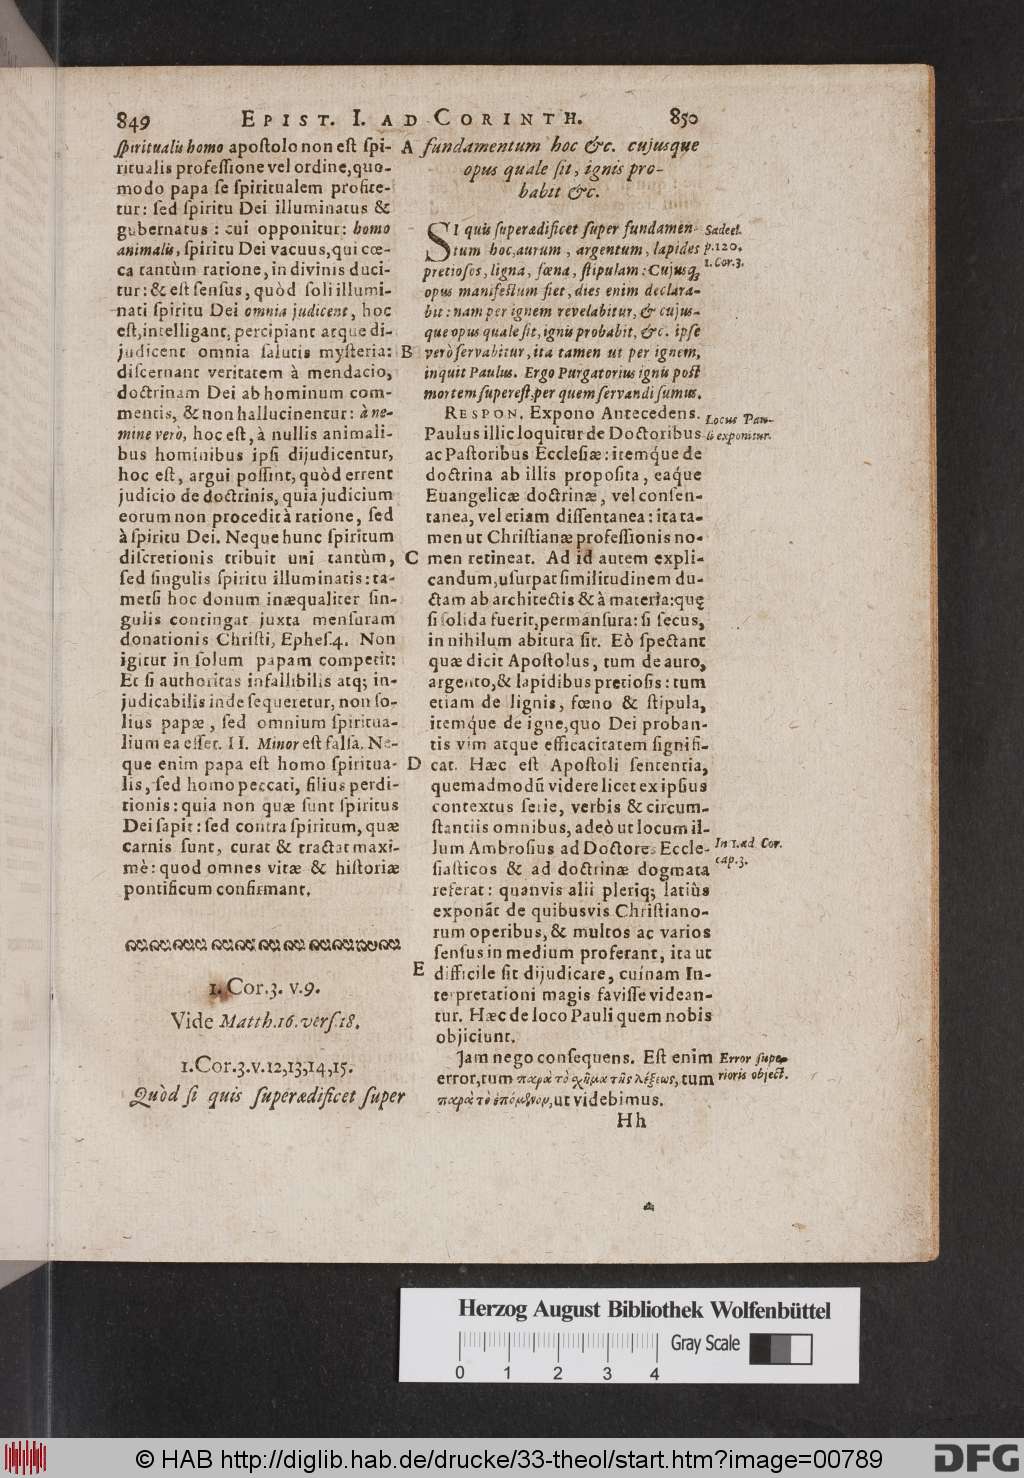 849 EPIST. I. AD CORINTH. 850
ſpiritualis homo apoſtolo non eſt ſpi-
ritualis profeſſione vel ordine, quo-
modo papa ſe ſpiritualem profite-
tur: ſed ſpiritu Dei illuminatus &
gubernatus : cui opponitur: homo
animalis, ſpiritu Dei vacuus, qui cœ-
ca tantùm ratione, in divinis duci-
tur: & eſt ſenſus, quòd ſoli illumi-
nati ſpiritu Dei omnia judicent, hoc
eſt, intelligant, percipiant atque di-
judicent omnia ſalutis myſteria:
diſcernant veritatem à mendacio,
doctrinam Dei ab hominum com-
mentis, & non hallucinentur: à ne-
mine verò, hoc eſt, à nullis animali-
bus hominibus ipſi dijudicentur,
hoc eſt, argui poſſint, quòd errent
judicio de doctrinis, quia judicium
eorum non procedit à ratione, ſed
à ſpiritu Dei. Neque hunc ſpiritum
diſcretionis tribuit uni tantùm,
ſed ſingulis ſpiritu illuminatis: ta-
metſi hoc donum inæqualiter ſin-
gulis contingat juxta menſuram
donationis Chriſti, Epheſ.4. Non
igitur in ſolum papam competit:
Et ſi authoritas infallibilis atq; in-
judicabilis inde ſequeretur, non ſo-
lius papæ, ſed omnium ſpiritua-
lium ea eſſet. II. Minor eſt falſa. Ne-
que enim papa eſt homo ſpiritua-
lis, ſed homo peccati, filius perdi-
tionis: quia non quæ ſunt ſpiritus
Dei ſapit: ſed contra ſpiritum, quæ
carnis ſunt, curat & tractat maxi-
mè: quod omnes vitæ & hiſtoriæ
pontificum confirmant.
1. Cor.3. v.9.
Vide Matth.16. verſ.18.
1.Cor.3.v.12,13,14,15.
Quòd ſi quis ſuperædificet ſuper
A
B
C
D
E
fundamentum hoc &c. cujusque
opus quale ſit, ignis pro-
babit &c.
SI quis ſuperædificet ſuper fundamen-
tum hoc, aurum, argentum, lapides
pretioſos, ligna, fœna, ſtipulam: Cujusq;
opus manifeſtum fiet, dies enim declara-
bit: nam per ignem revelabitur, & cujus-
que opus quale ſit, ignis probabit, &c. ipſe
verò ſervabitur, ita tamen ut per ignem,
inquit Paulus. Ergo Purgatorius ignis poſt
mortem ſupereſt, per quem ſervandi ſumus.
RESPON. Expono Antecedens.
Paulus illic loquitur de Doctoribus
ac Paſtoribus Eccleſiæ: itemq́ue de
doctrina ab illis propoſita, eaq́ue
Euangelicæ doctrinæ, vel conſen-
tanea, vel etiam diſſentanea: ita ta-
men ut Chriſtianæ profeſſionis no-
men retineat. Ad id autem expli-
candum, uſurpat ſimilitudinem du-
ctam ab architectis & à materia: quę
ſi ſolida fuerit, permanſura: ſi ſecus,
in nihilum abitura ſit. Eò ſpectant
quæ dicit Apoſtolus, tum de auro,
argento, & lapidibus pretioſis: tum
etiam de lignis, fœno & ſtipula,
itemq́ue de igne, quo Dei proban-
tis vim atque efficacitatem ſignifi-
cat. Hæc eſt Apoſtoli ſententia,
quemadmodũ videre licet ex ipſius
contextus ſerie, verbis & circum-
ſtantiis omnibus, adeò ut locum il-
lum Ambroſius ad Doctores Eccle-
ſiaſticos & ad doctrinæ dogmata
referat: quanvis alii pleriq; latiùs
exponãt de quibusvis Chriſtiano-
rum operibus, & multos ac varios
ſenſus in medium proferant, ita ut
difficile ſit dijudicare, cuínam In-
terpretationi magis faviſſe videan-
tur. Hæc de loco Pauli quem nobis
objiciunt.
Jam nego conſequens. Eſt enim
error, tum παρὰ τὸ χῆμα τῆς λέξεως, tum
παρὰ τὸ ἑπόμενον, ut videbimus.
Hh
Sadeel.
p.120.
1. Cor.3.
Locus Pau-
li exponitur.
In 1. ad Cor.
cap.3.
Error ſupe-
rioris object.
Herzog August Bibliothek Wolfenbüttel
Gray Scale
0 1 2 3 4
© HAB http://diglib.hab.de/drucke/33-theol/start.htm?image=00789
DFG